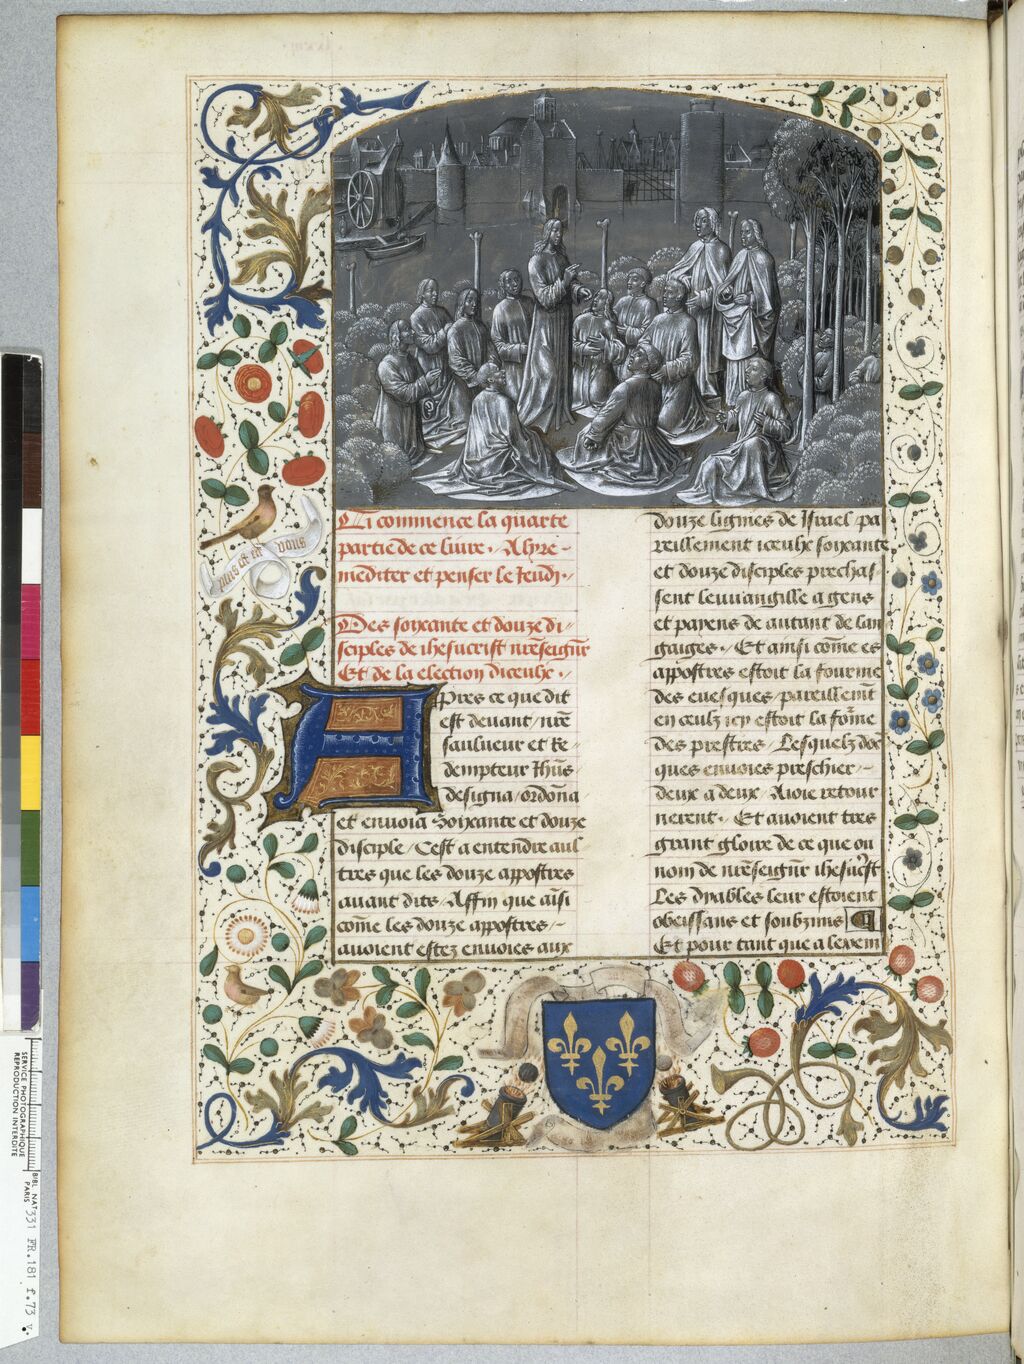 plus est en vous
Ci commence la quarte
partie de ce liure. A lire
mediter et penser le Jeudi.
Des soixante et douze di
sciples de ihesucrist nr̄e seignr̄
Et de la election diceulx.
APres ce que dit
est deuant / nr̄e
saulueur et Re
dempteur Jhūs
designa / ordōna
et enuoia Soixante et douze
disciple / Cest a entendre aul
tres que les douze appostres
auant dits / Affin que aīsi
com̄e les douze appostres /
auoient estez enuoies aux
douze lignies de Israel pa
reillement iceulx soixante
et douze disciples preschas
sent leuuangille a gens
et payens de autant de lan
gaiges. Et ainsi com̄e es
appostres estoit la fourme
des euesques pareillemēt
en ceulz icy estoit la for̄me
des prestres / Lesquelz doc̄
ques enuoies preschier
deux a deux / A ioie retour
nerent. Et auoient tres
grant gloire de ce que ou
nom de nr̄e seignr̄ ihesucrist
Les dyables leur estoient
obeissans et soubzmis
Et pour tant que a lexem
SERVICE PHOTOGRAPHIQUE
REPRODUCTION INTERDITE
BIBL. NAT.
PARIS
331 FR.181 f.73 v.